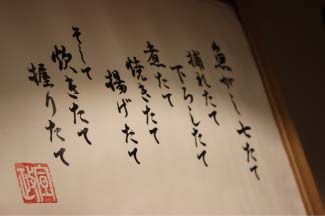 魚がし七たて
捕れたて
下ろしたて
煮たて
焼きたて
揚げたて
そして
炊きたて
握りたて